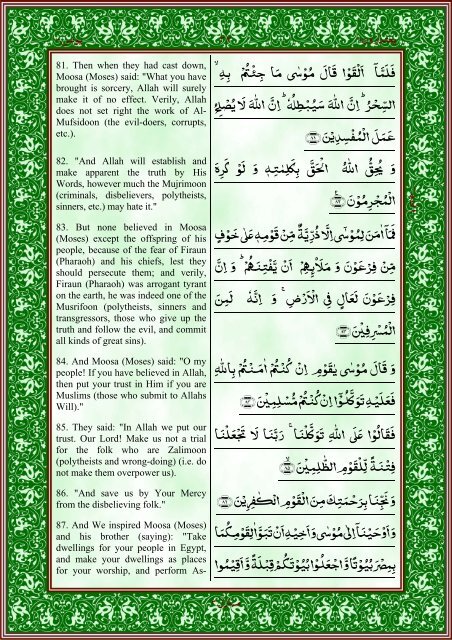 81. Then when they had cast down,
Moosa (Moses) said: "What you have
brought is sorcery, Allah will surely
make it of no effect. Verily, Allah
does not set right the work of Al-
Mufsidoon (the evil-doers, corrupts,
etc.).
82. "And Allah will establish and
make apparent the truth by His
Words, however much the Mujrimoon
(criminals, disbelievers, polytheists,
sinners, etc.) may hate it."
83. But none believed in Moosa
(Moses) except the offspring of his
people, because of the fear of Firaun
(Pharaoh) and his chiefs, lest they
should persecute them; and verily,
Firaun (Pharaoh) was arrogant tyrant
on the earth, he was indeed one of the
Musrifoon (polytheists, sinners and
transgressors, those who give up the
truth and follow the evil, and commit
all kinds of great sins).
84. And Moosa (Moses) said: "O my
people! If you have believed in Allah,
then put your trust in Him if you are
Muslims (those who submit to Allahs
Will)."
85. They said: "In Allah we put our
trust. Our Lord! Make us not a trial
for the folk who are Zalimoon
(polytheists and wrong-doing) (i.e. do
not make them overpower us).
86. "And save us by Your Mercy
from the disbelieving folk."
87. And We inspired Moosa (Moses)
and his brother (saying): "Take
dwellings for your people in Egypt,
and make your dwellings as places
for your worship, and perform As-
فَلَمَّآ اَلْقَوْا قَالَ مُوْسٰى مَا جِئْتُمْ بِهِ ۙ
السِّحْرُ ؕ اِنَّ اللّٰهَ سَيُبْطِلُهٗ ؕ اِنَّ اللّٰهَ لَا يُصْلِحُ
عَمَلَ الْمُفْسِدِيْنَ ۸۱
وَ يُحِقُّ اللّٰهُ الْحَقَّ بِكَلِمٰتِهٖ وَ لَوْ كَرِهَ
الْمُجْرِمُوْنَ ۸۲
فَمَآ اٰمَنَ لِمُوْسٰٓى اِلَّا ذُرِّيَّةٌ مِّنْ قَوْمِهٖ عَلٰى خَوْفٍ
مِّنْ فِرْعَوْنَ وَ مَلَا۠ئِهِمْ اَنْ يَّفْتِنَهُمْ ؕ وَ اِنَّ
فِرْعَوْنَ لَعَالٍ فِى الْاَرْضِ ۚ وَ اِنَّهٗ لَمِنَ
الْمُسْرِفِيْنَ ۸۳
وَ قَالَ مُوْسٰى يٰقَوْمِ اِنْ كُنْتُمْ اٰمَنْتُمْ بِاللّٰهِ
فَعَلَيْهِ تَوَكَّلُوْٓا اِنْ كُنْتُمْ مُّسْلِمِيْنَ ۸۴
فَقَالُوْا عَلَى اللّٰهِ تَوَكَّلْنَا ۚ رَبَّنَا لَا تَجْعَلْنَا
فِتْنَةً لِّلْقَوْمِ الظّٰلِمِيْنَ ۸۵
وَ نَجِّنَا بِرَحْمَتِكَ مِنَ الْقَوْمِ الْكٰفِرِيْنَ ۸۶
وَ اَوْحَيْنَآ اِلٰى مُوْسٰى وَ اَخِيْهِ اَنْ تَبَوَّاٰ لِقَوْمِكُمَا
بِمِصْرَ بُيُوْتًا وَّ اجْعَلُوْا بُيُوْتَكُمْ قِبْلَةً وَّ اَقِيْمُوا